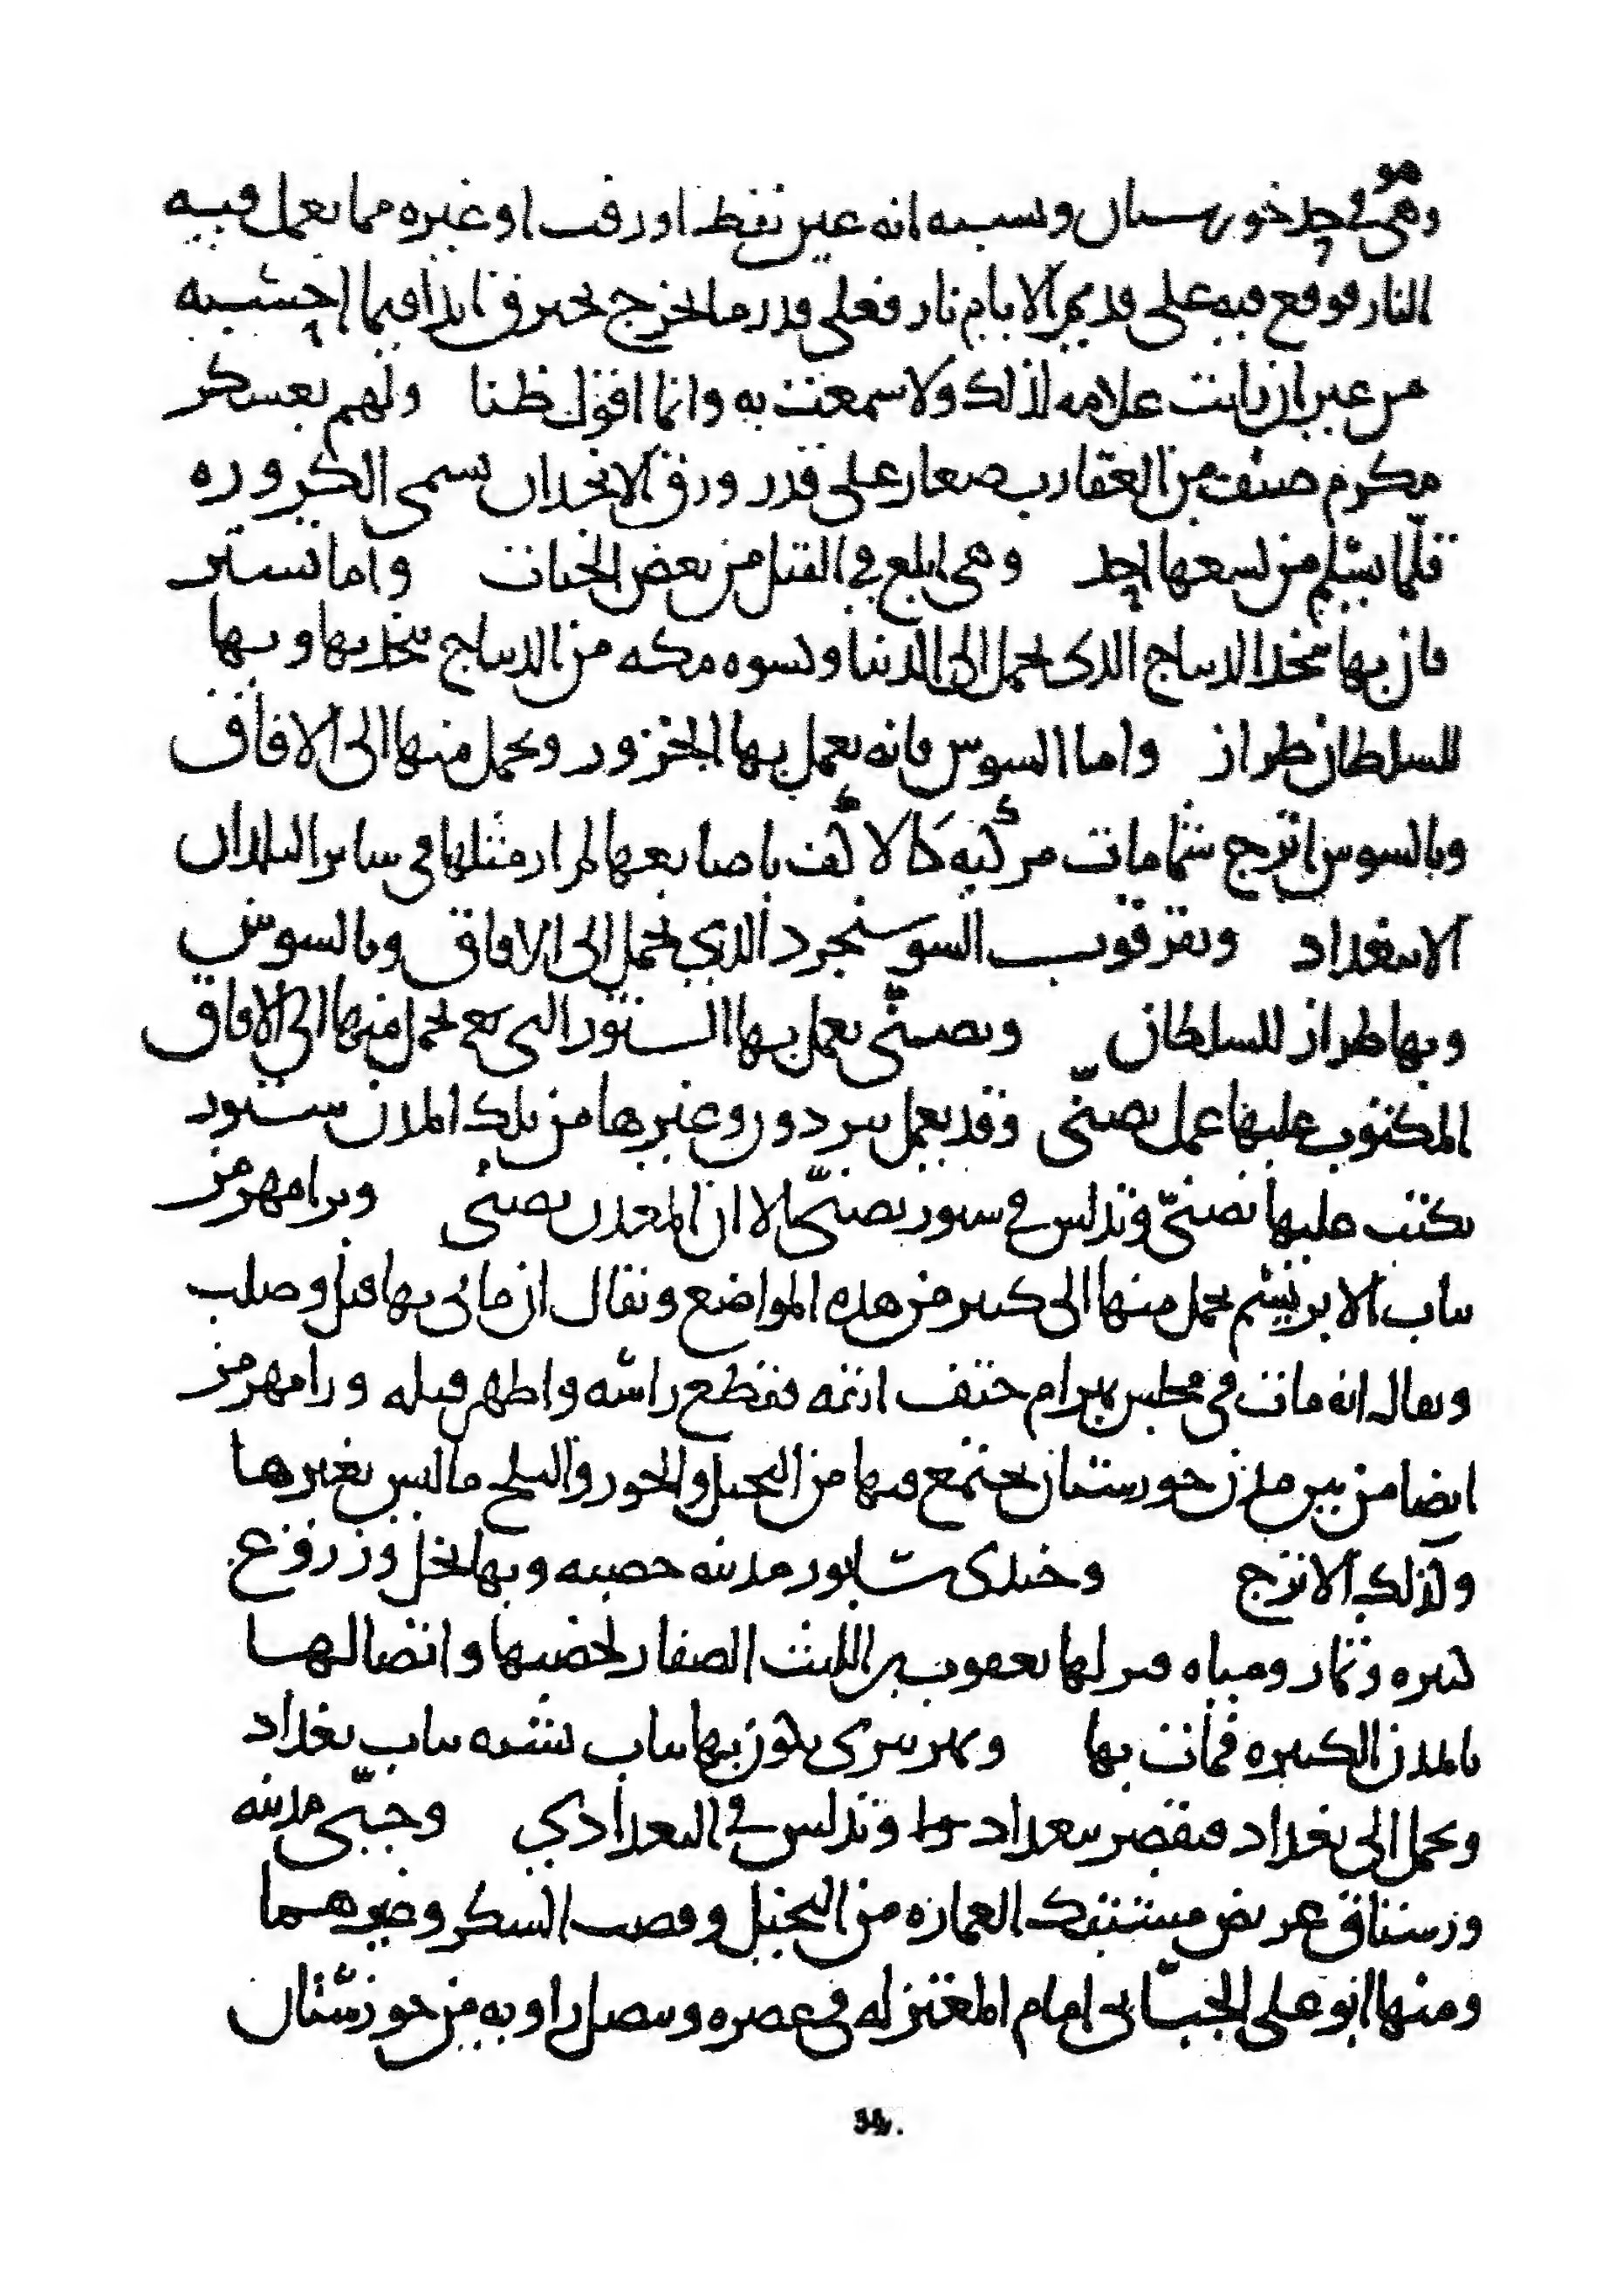 هو
وهى فى حد خورستان ونسبه انه عين نفط او زفت او غيره مما يعمل فيه
النار فوقع فيه على قديم الايام نار فعلى قدر ما يخرج يحترق ابدا فيما احسبه
من غير ان رايت علامه لذلك ولا سمعت به وانما اقول ظنا ولهم بعسكر
مكرم صنف من العقارب صغار على قدر ورق الانجدان تسمى الكروره
قلما يسلم من لسعها احد وهى ابلغ فى القتل من بعض الحيات واما تستر
فان بها يتخذ الديباج الذى يحمل الى الدنيا وكسوه مكه من الديباج يتخذ بها وبها
للسلطان طراز واما السوس فانه يعمل بها الخزوز ويحمل منها الى الافاق
وبالسوس اترج شمامات مركبه كالاكف باصابعها لم ار مثلها فى ساير البلدان
الا ببغداد وبقرقوب السوسنجرد الذي يحمل الى الافاق وبالسوس
وبها طراز للسلطان وبصنى يعمل بها الستور التى تحمل منها الى الافاق
المكتوب عليها عمل بصنى وقد يعمل ببردور وغيرها من تلك المدن ستور
يكتب عليها بصنى وتدلس فى ستور بصنى الا ان المعدن بصنى وبرامهرمز
ثياب الابريسم يحمل منها الى كثير من هذه المواضع ويقال ان مانى بها قتل وصلب
ويقال انه مات فى محبس بهرام حتف انفه فقطع راسه واظهر قتله ورامهرمز
ايضا من بين مدن خورستان يجتمع فيها من النخيل والجوز والثلج ما ليس بغيرها
وكذلك الاترج وجندى سابور مدينه خصبه وبها نخل وزروع
كثيره وثمار ومياه نزلها يعقوب بن الليث الصفار لخصبها واتصالها
بالمدن الكثيره فمات بها ونهر تيرى يكون بها ثياب تشبه ثياب بغداد
ويحمل الى بغداد فيقصر ببغداد وتدلس فى البغدادي وجبى مدينه
ورستاق عريض مشتبك العماره من النخيل وقصب السكر وغيرهما
ومنها ابو على الجبائى امام المعتزله فى عصره ويتصل زاويه من خوزستان